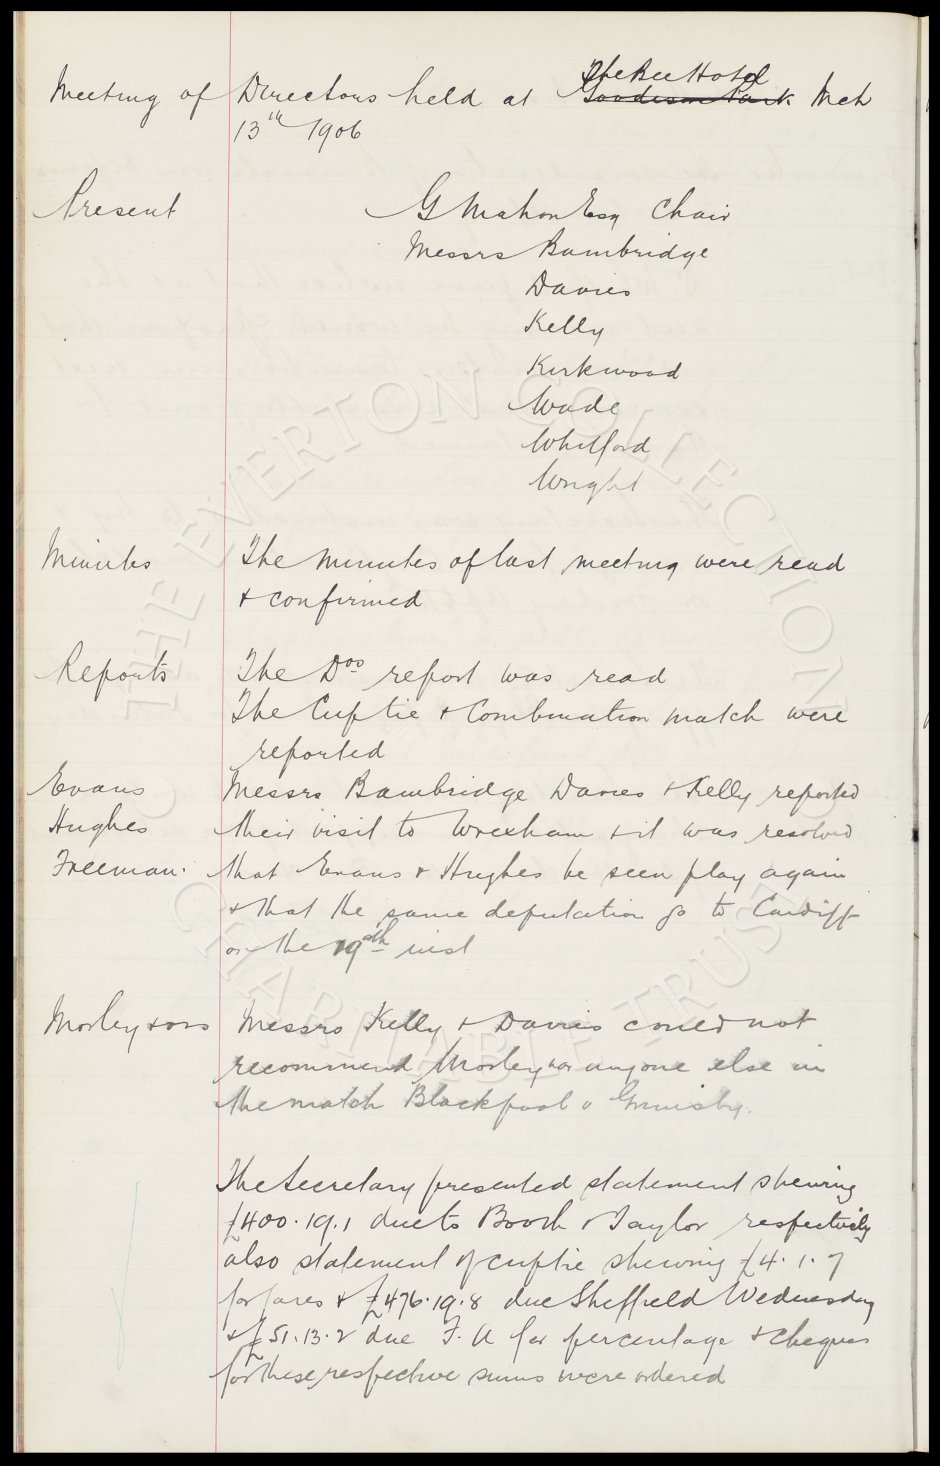 The Bee Hotel
Meeting of Directors held at Goodison Park Mch
13th 1906
Present G Mahon Esq Chair
Messrs Bambridge
Davies
Kelly
Kirkwood
Wade
Whitford
Wright
Minutes The minutes of last meeting were read
& confirmed
Reports The Drs report was read
The Cup tie & Combination match were
reported
Evans Messrs Bambridge Davies & Kelly reported
Hughes their visit to Wrexham & it was resolved
Freeman. that Evans & Hughes be seen play again
& that the same deputation go to Cardiff
on the 19th inst
Morley & ors Messrs Kelly & Davies could not
recommend Morley or anyone else in
the match Blackpool v Grimsby.
The Secretary presented statement shewing
£400.19.1 due to Booth & Taylor respectively
also statement of cup tie shewing £4.1.7
for fares & £476.19.8 due Sheffield Wednesday
& £51.13.2 due F.A for percentage & cheques
for these respective sums were ordered
THE EVERTON COLLECTION
CHARITABLE TRUST